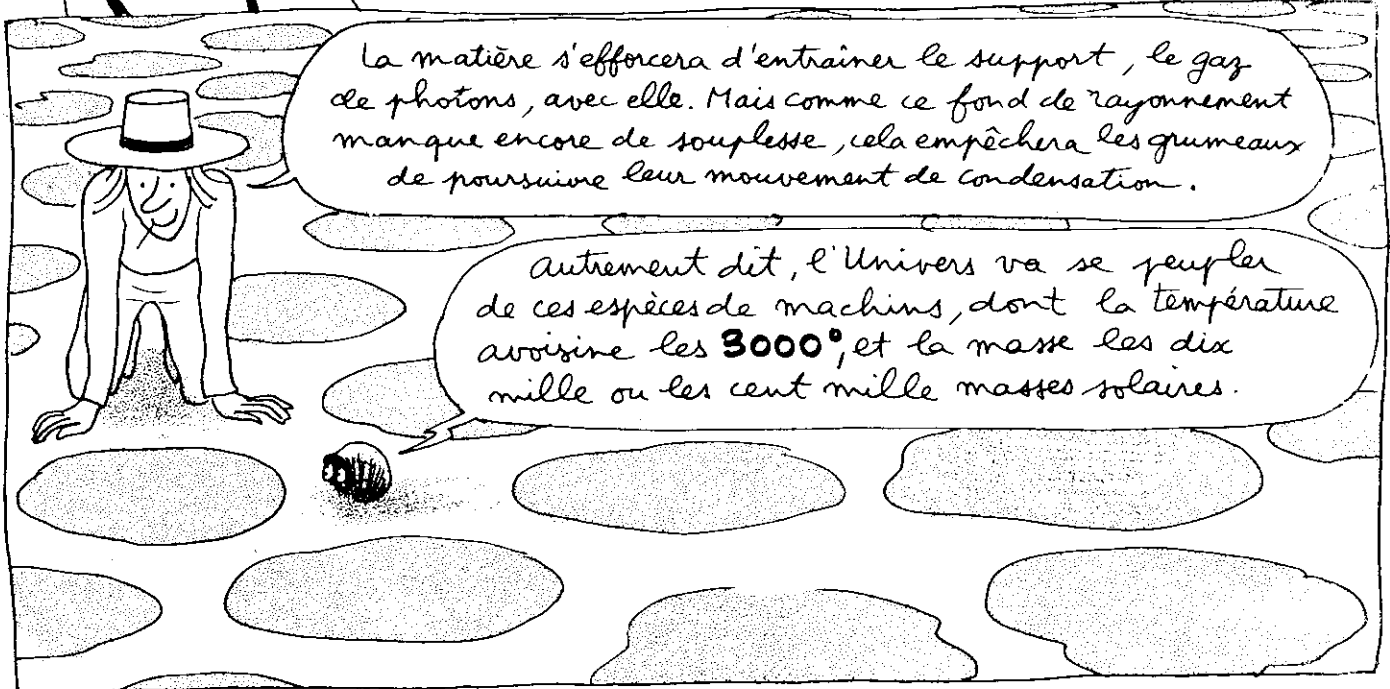 La matière s'efforcera d'entraîner le support, le gaz
de photons, avec elle. Mais comme ce fond de rayonnement
manque encore de souplesse, cela empêchera les grumeaux
de poursuivre leur mouvement de condensation.
autrement dit, l'Univers va se peupler
de ces espèces de machins, dont la température
avoisine les 3000°, et la masse les dix
mille ou les cent mille masses solaires.